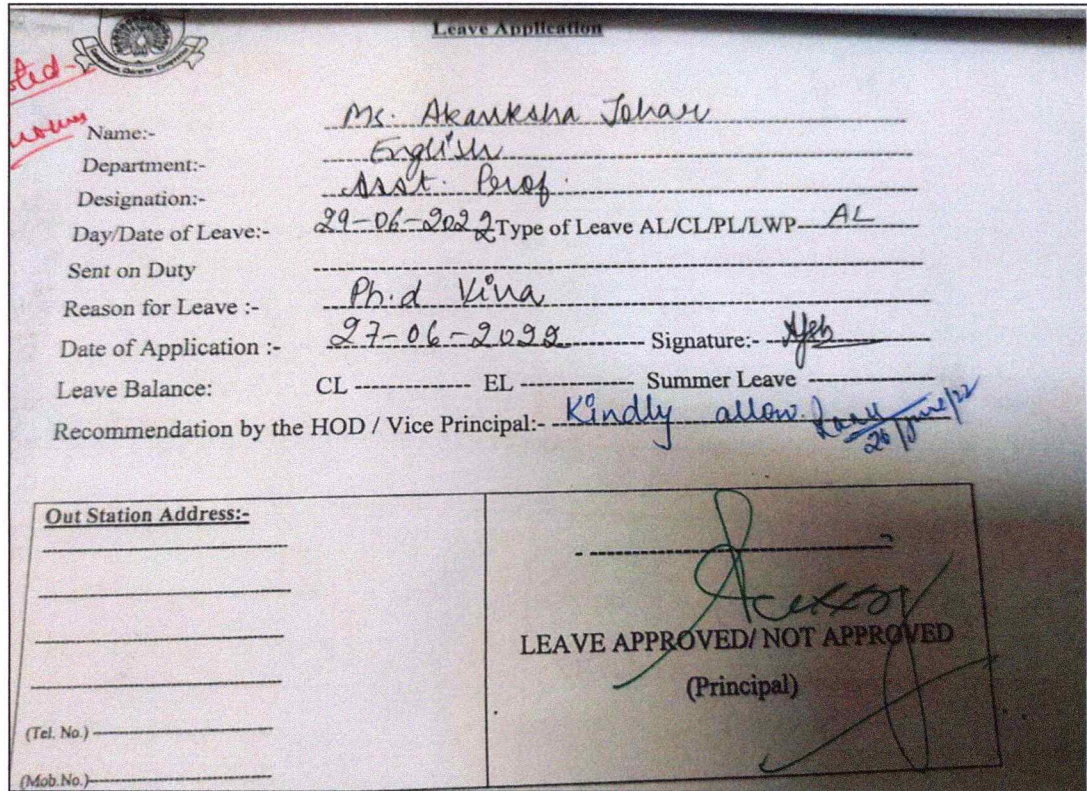 Leave Application
Name:- Ms. Akanksha Johari
Department:- English
Designation:- Asst. Prof.
Day/Date of Leave:- 29-06-2022 Type of Leave AL/CL/PL/LWP AL
Sent on Duty
Reason for Leave :- Ph.d Viva
Date of Application :- 27-06-2022 Signature:-
Leave Balance: CL EL Summer Leave
Recommendation by the HOD / Vice Principal:- Kindly allow.
/June/22
Out Station Address:-
LEAVE APPROVED/ NOT APPROVED
(Principal)
(Tel. No.)
(Mob.No.)